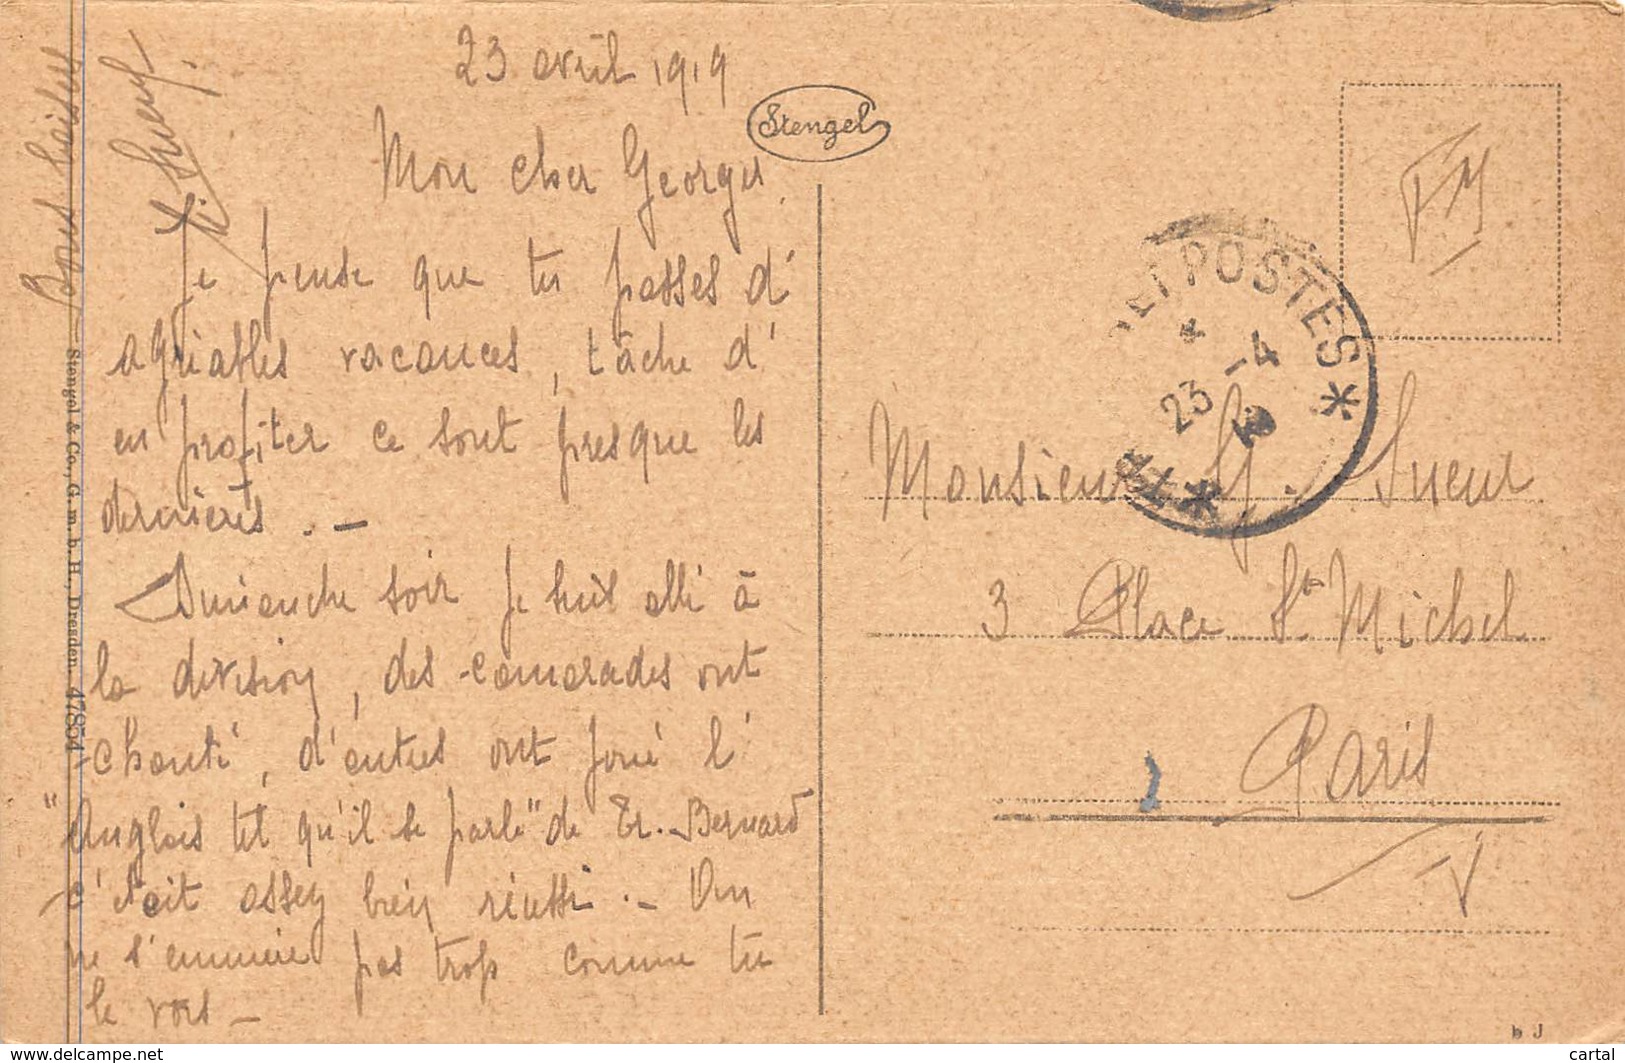 23 avril 1919
Stengel
Mon cher Georges,
Je pense que tu passes d'
agréables vacances, tâche d'
en profiter ce sont presque les
dernières. –
Dimanche soir je suis allé à
la division, des camarades ont
chanté, d'autres ont joué l'
"Anglais tel qu'il se parle" de Tr. Bernard
c'était assez bien réussi. – On
ne s'ennuie pas trop comme tu
le vois –
Bons baisers
Sueur
Stengel & Co., G. m. b. H., Dresden. 47854
FM
ET POSTES
23 -4
Monsieur G. Sueur
3 Place St Michel
Paris
V
b J
www.delcampe.net
cartal